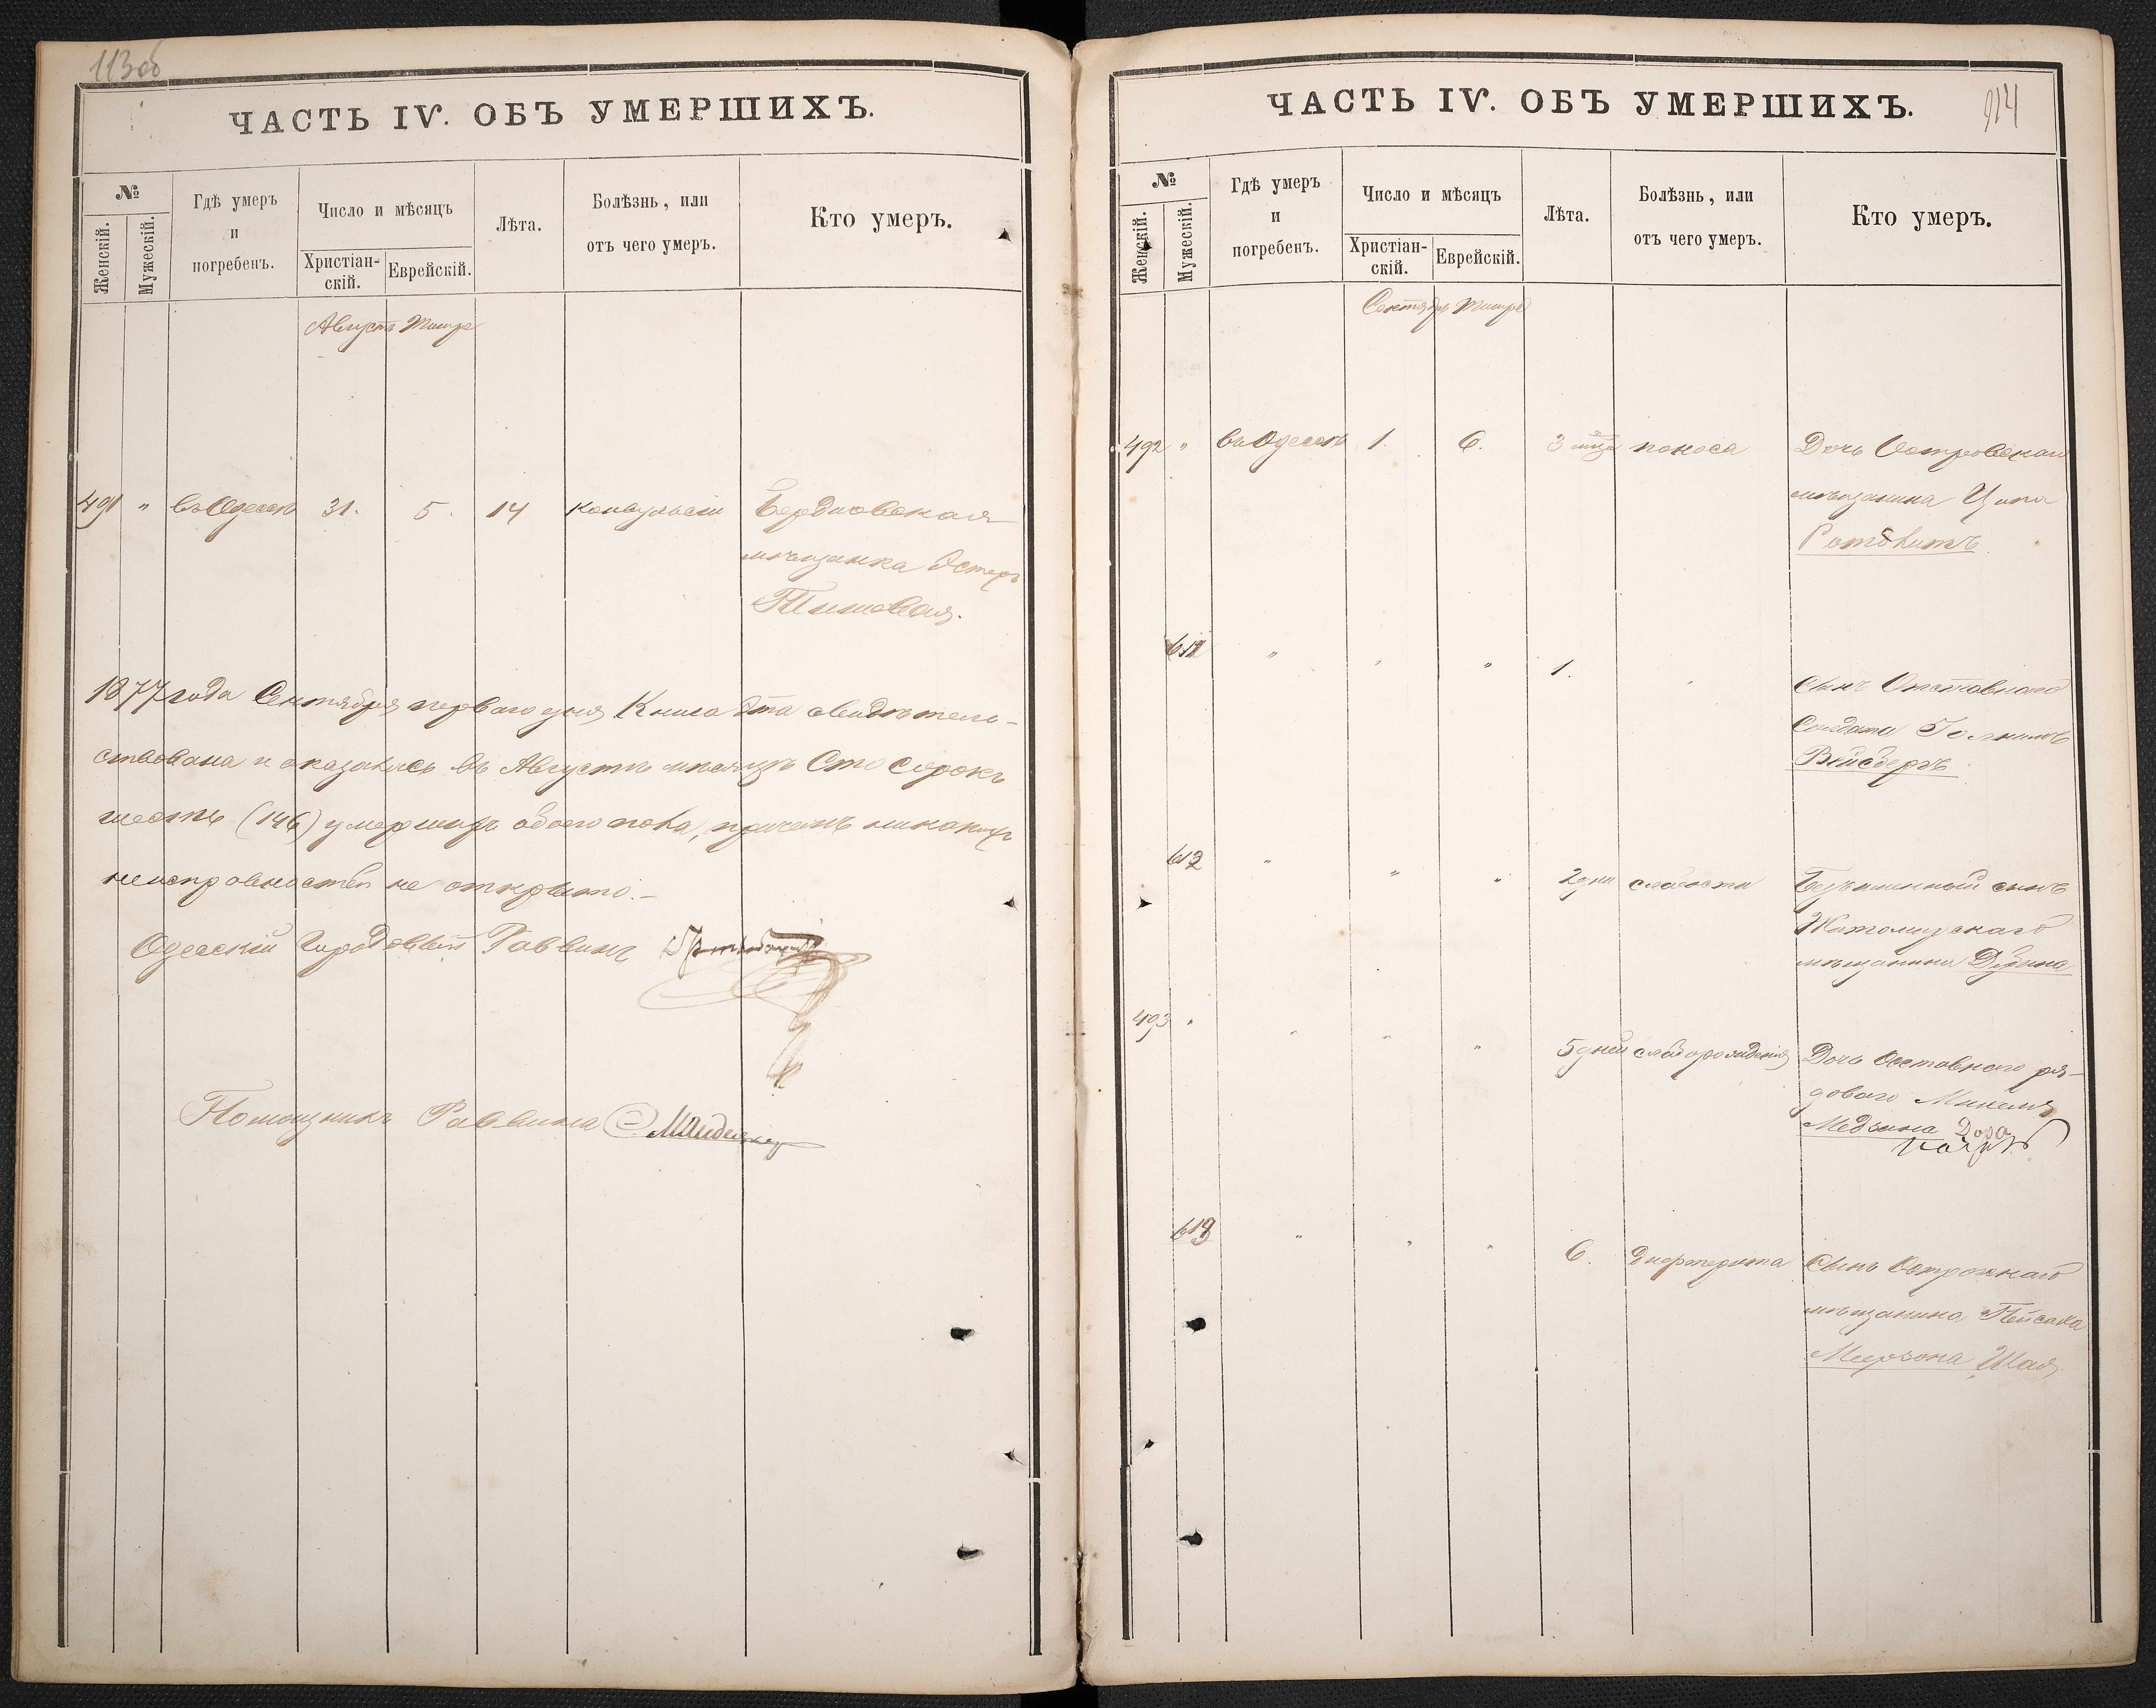 113об
ЧАСТЬ IV. ОБЪ УМЕРШИХЪ.
№
Женскій.
Мужескій.
Гдѣ умеръ
и
погребенъ.
Число и мѣсяцъ
Христіан-
скій.
Еврейскій.
Лѣта.
Болѣзнь, или
отъ чего умеръ.
Кто умеръ.
Августъ Тишре
491 " въ Одессѣ 31. 5. 14 конвульсіи
мѣщанка Эстеръ
1877 года Сентября перваго дня Книга эта свидѣтель-
ствована и оказалось въ Августѣ мѣсяцѣ Сто сорокъ
шесть (146) умершихъ обоего пола, причемъ никакихъ
неисправностей не открыто.-
Одесскій Городовый Раввинъ
Помощникъ Раввина
ЧАСТЬ IV. ОБЪ УМЕРШИХЪ.
114
№
Женскій.
Мужескій.
Гдѣ умеръ
и
погребенъ.
Число и мѣсяцъ
Христіан-
скій.
Еврейскій.
Лѣта.
Болѣзнь, или
отъ чего умеръ.
Кто умеръ.
Сентябрь Тишре
492 " въ Одессѣ 1. 6. 3 поноса Дочь
мѣщанина Ципа
611 " " " 1. "
Сынъ Отставнаго
Солдата
Вейсберъ
612 " " " 2 дни слабости Безъименный сынъ
Житомирскаго
мѣщанина
493 " " " " 5 дней слаборожденія Дочь Отставнаго ря-
доваго Михеля
Медзина Дора
613 " " " 6. Дифтерита Сынъ Острожскаго
мѣщанина Пейсаха
Меерзона, Шая.